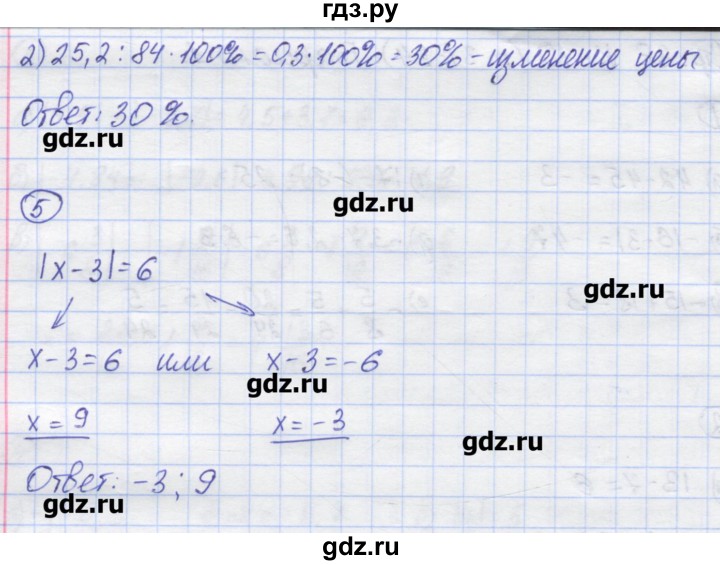 гдз.ру
2) 25,2 : 84 · 100% = 0,3 · 100% = 30% – изменение цены
Ответ: 30%.
gdz.ru
gdz.ru
5
|x – 3| = 6
gdz.ru
x – 3 = 6 или x – 3 = –6
gdz.ru
x = 9 x = –3
gdz.ru
Ответ: –3; 9
gdz.ru
gdz.ru